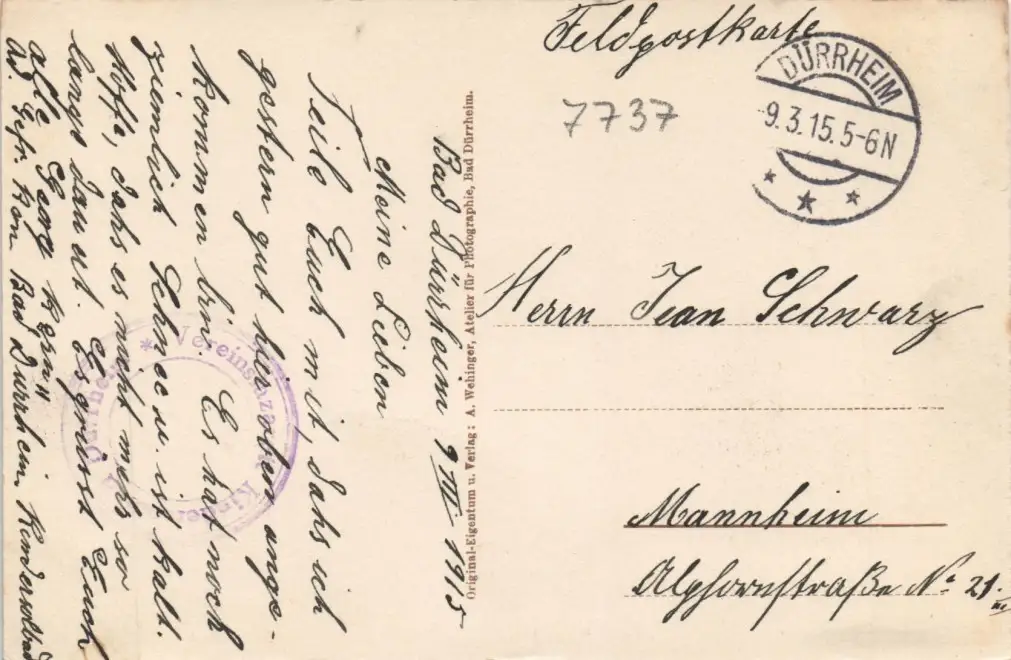 Feldpostkarte
DÜRRHEIM
9.3.15.5-6N
7737
Herrn Jean Schwarz
Mannheim
Alphornstraße No 21.
Original-Eigentum u. Verlag: A. Wehinger, Atelier für Photographie, Bad Dürrheim.
Bad Dürrheim 9 III 1915
Meine Lieben
Teile Euch mit, dahs ich
gestern gut hier oben ange-
kommen bin. Es hat noch
ziemlich Schnee u. ist kalt.
Hoffe, dahs es nicht mehr so
lange dauert. Es grüsst Euch
alle
Ad. Gefr. Bad Dürrheim. Kindersolbad
* Vereinslazarett Kinder